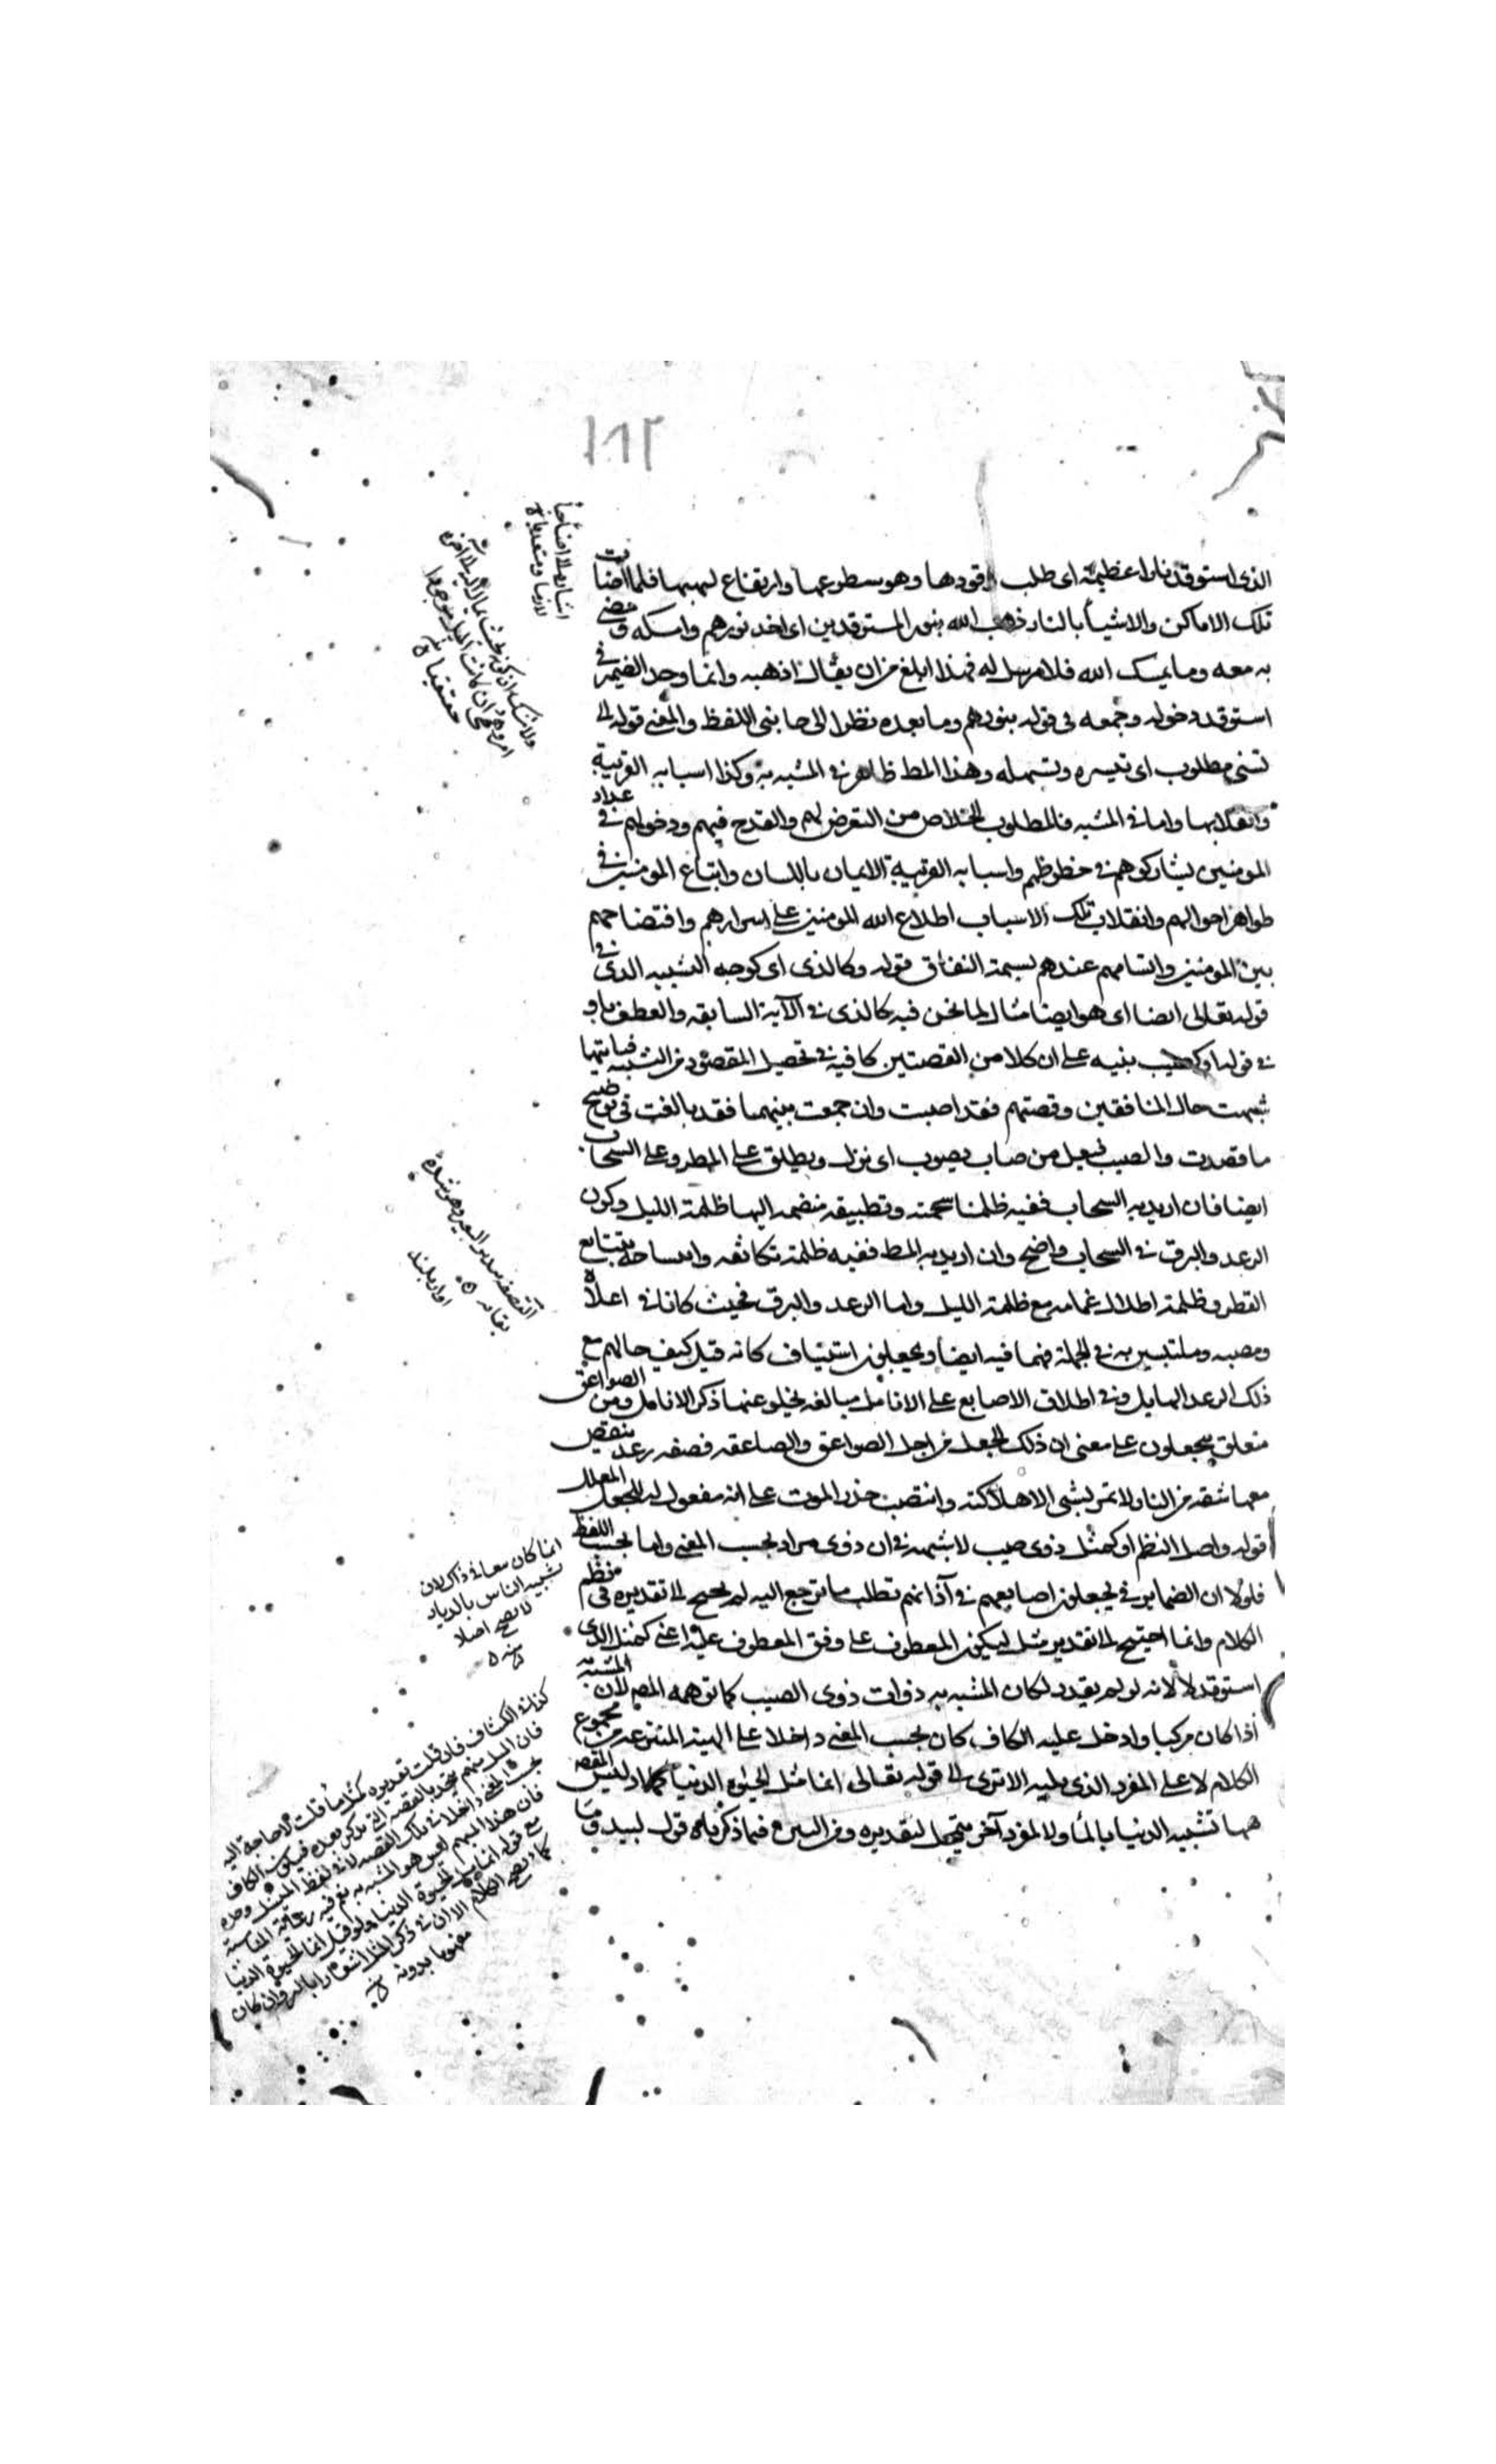 ١٨٢
الذى استوقد نارا عظيمة اى طلب وقودها وهو سطوعها وارتفاع لهبها فلما اضاءت
تلك الاماكن والاشياء بالنار ذهب الله بنور المستوقدين اى اخذ نورهم وامسكه ومضى
به معه وما يمسك الله فلا مرسل له فهذا ابلغ من ان يقال اذهبه وانما وحد الضمير فى
استوقد وحوله وجمعه فى قوله بنورهم وما بعده نظرا الى جانبى اللفظ والمعنى قوله الى
تسنى مطلوب اى تيسره وتسهله وهذا المط ظاهر فى المشبه به وكذا اسبابه القريبة
وانقلابها واما فى المشبه فالمطلوب الخلاص من التعرض لهم والقدح فيهم ودخولهم فى عداد
المومنين ليشاركوهم فى حظوظهم واسبابه القريبة الايمان باللسان واتباع المومنين فى
ظواهر احوالهم وانقلاب تلك الاسباب اطلاع الله المومنين على اسرارهم وافتضاحهم
بين المومنين واتسامهم عندهم بسمة النفاق قوله وكالذى اى كوجه التشبيه الذى فى
قوله تعالى ايضا اى هو ايضا مثال لما نحن فيه كالذى فى الآية السابقه والعطف باو
فى قوله او كصيب ينبه على ان كلا من القصتين كافية فى تحصيل المقصود من التشبيه فبايتهما
شبهت حال المنافقين وقصتهم فقد اصبت وان جمعت بينهما فقد بالغت فى توضيح
ما قصدت والصيب فيعل من صاب يصوب اى نزل ويطلق على المطر وعلى السحاب
ايضا فان اريد به السحاب ففيه ظلمتا سحمته وتطبيقه منضمه اليها ظلمة الليل وكون
الرعد والبرق فى السحاب واضح وان اريد به المط ففيه ظلمة تكاثفه وانتساجه بتتابع
القطر وظلمة اظلال غمامه مع ظلمة الليل واما الرعد والبرق فحيث كانا فى اعلاه
ومصبه وملتبسين به فى الجملة فهما فيه ايضا ويجعلون استيناف كانه قيل كيف حالهم مع
ذلك الرعد الهايل وفى اطلاق الاصابع على الانامل مبالغه يخلو عنها ذكر الانامل ومن الصواعق
متعلق بيجعلون على معنى ان ذلك الجعل من اجل الصواعق والصاعقه قصفه رعد ينقض
معها شقة من النار لا تمر بشى الا اهلكته وانتصب حذر الموت على انه مفعول له للجعل المعلل
قوله واصل النظم او كمثل ذوى صيب لا شبهه فى ان ذوى مراد بحسب المعنى واما بحسب اللفظ
فلولا ان الضماير فى يجعلون اصابعهم فى آذانهم تطلب ما ترجع اليه لم يحتج الى تقديره فى نظم
الكلام وانما احتيج الى تقدير مثل ليكون المعطوف على وفق المعطوف عليه اعنى كمثل الذى
استوقد لا لانه لو لم يقدر لكان المشبه به ذوات ذوى الصيب كما توهمه المص لان المشبه به
اذا كان مركبا وادخل عليه الكاف كان بحسب المعنى داخلا على الهيئة المنتزعه من مجموع
الكلام لا على المفرد الذى يليه الا ترى الى قوله تعالى انما مثل الحيوة الدنيا كماء اذ ليس المقصد
ههنا تشبيه الدنيا بالماء ولا لمفرد آخر يتمحل لتقديره ومن البين فى ما ذكرناه قول لبيد وما
القصفه هدير البعير وهو شدة
انما كان معا فى ذاك لان
تشبيه الناس بالديار
لا يصح اصلا
منه
كذا فى الكشاف فان قلت تقديره كمثل ماء قلت لا حاجة اليه